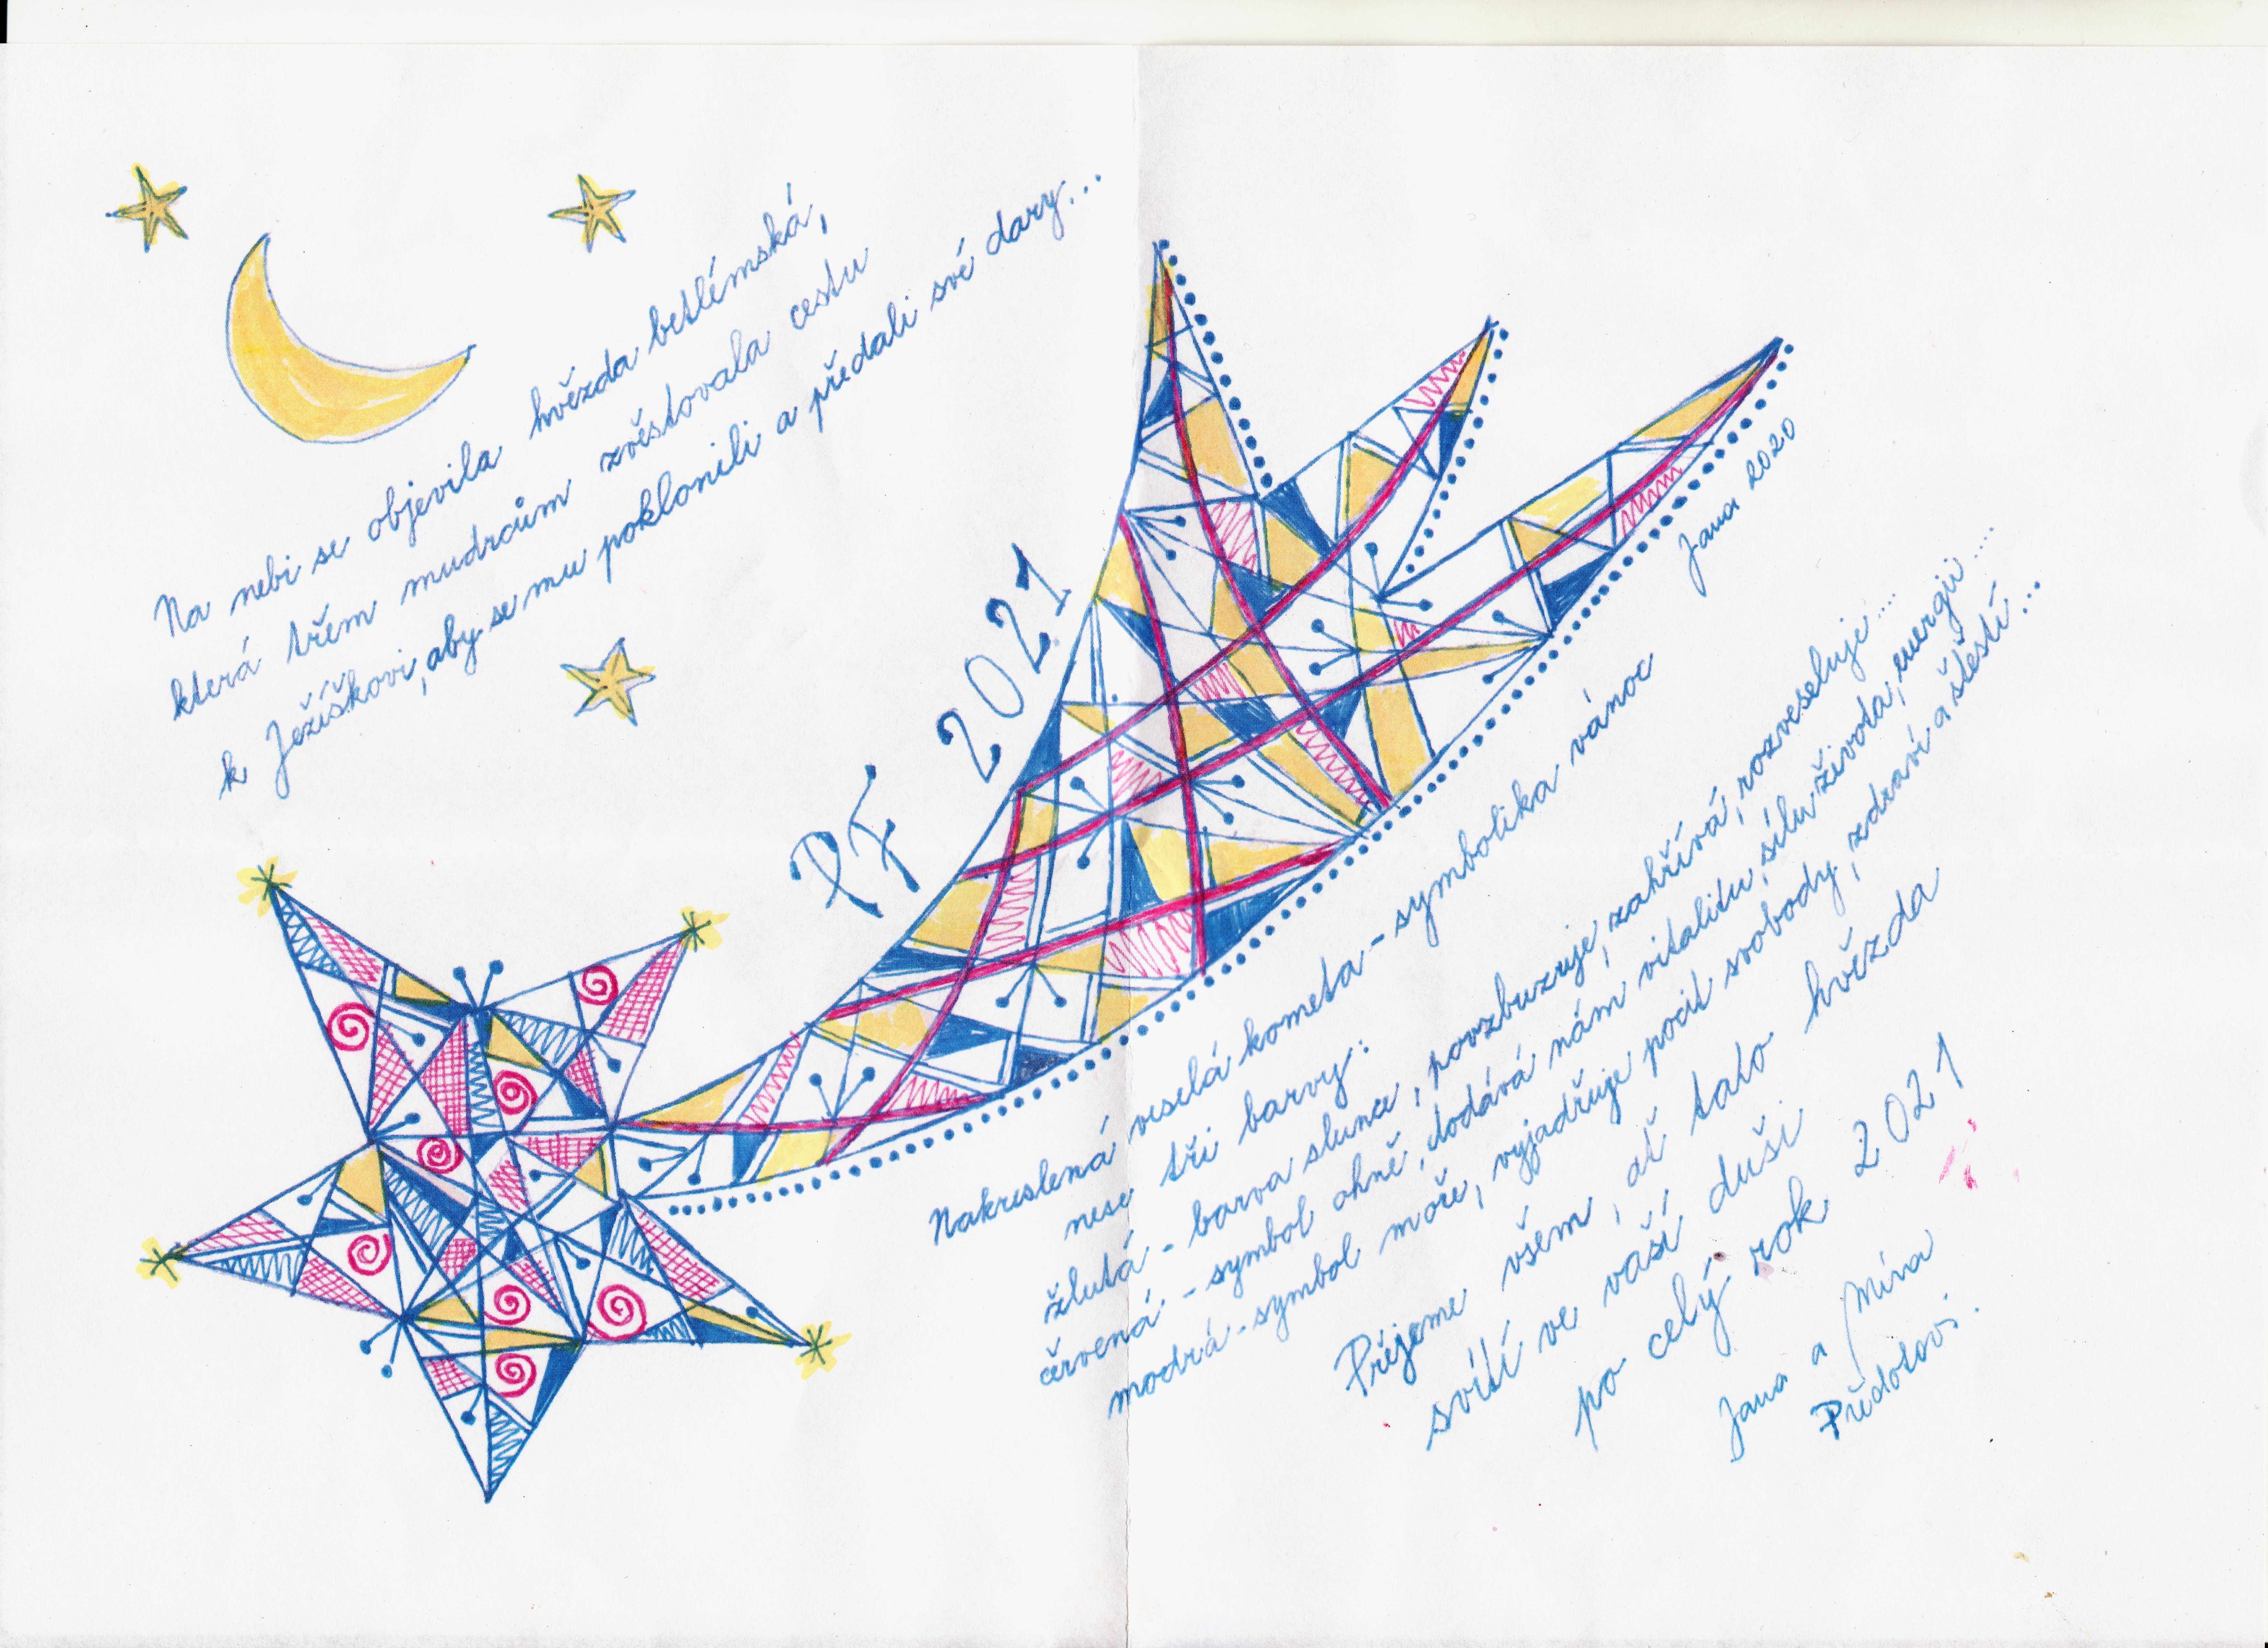 Na nebi se objevila hvězda betlémská,
která třem mudrcům zvěstovala cestu
k Ježíškovi, aby se mu poklonili a předali své dary...
PF 2021
Jana 2020
Nakreslená veselá kometa - symbolika vánoc
nese tři barvy:
žlutá - barva slunce, povzbuzuje, zahřívá, rozveseluje....
červená - symbol ohně, dodává nám vitalitu, sílu života, energii.....
modrá - symbol moře, vyjadřuje pocit svobody, zdraví a štěstí...
Přejeme všem, ať tato hvězda
svítí ve vaší duši
po celý rok 2021
Jana a Míra
Předotovi.